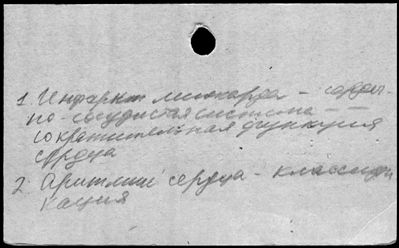 1. Инфаркт миокарда – сердеч-
но-сосудистая система –
сократительная функция
сердца
2. Аритмии сердца – классифи
кация